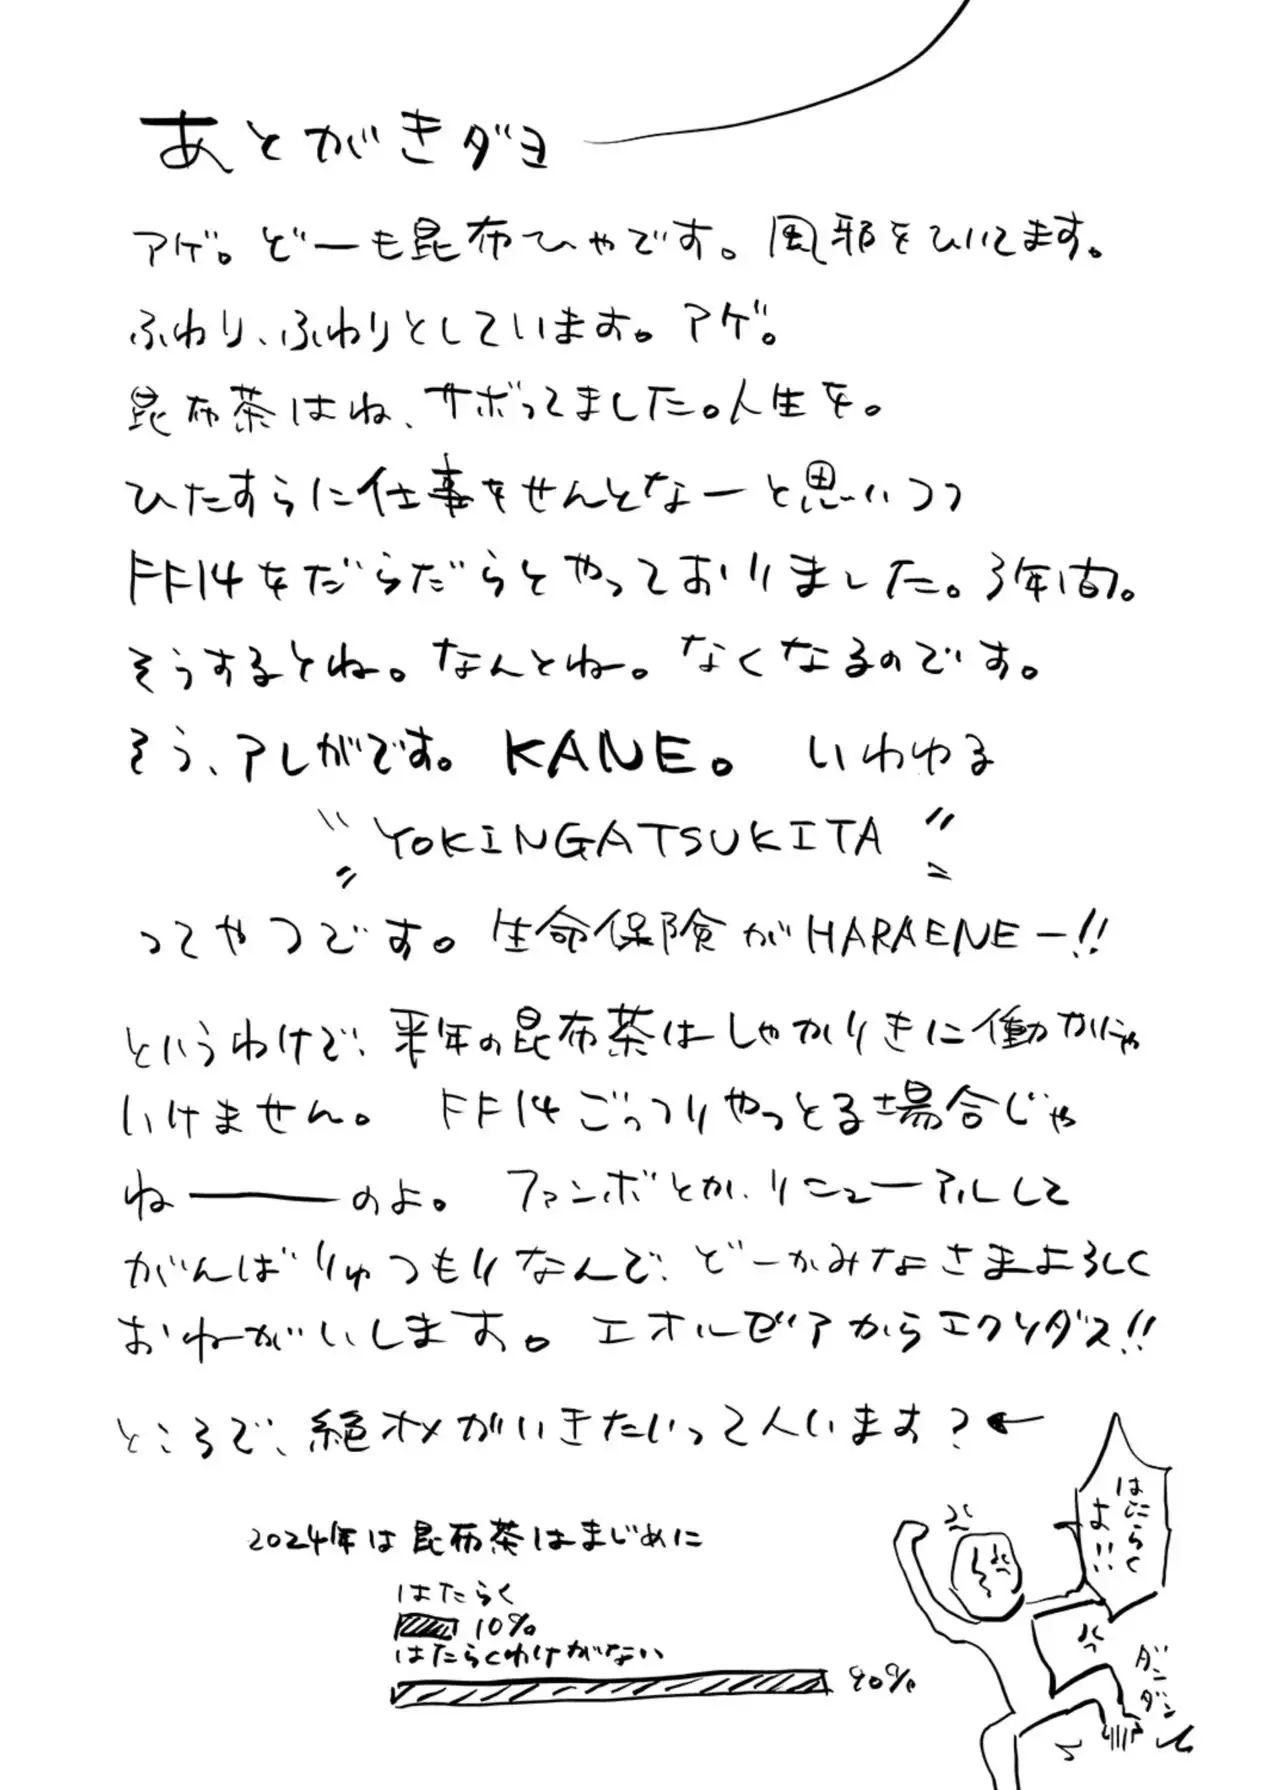 あとがきダヨ
アゲ。どーも昆布ひゃです。風邪をひいてます。
ふわり、ふわりとしています。アゲ。
昆布茶はね、サボってました。人生を。
ひたすらに仕事をせんとなーと思いつつ
FF14をだらだらとやっておりました。3年間。
そうするとね。なんとね。なくなるのです。
そう、アレがです。KANE。いわゆる
"YOKINGATSUKITA"
ってやつです。生命保険がHARAENEー!!
というわけで、来年の昆布茶はしゃかりきに働かにゃ
いけません。FF14ごっつりやっとる場合じゃ
ねーーーのよ。ファンボとか、リニューアルして
がんばりゅつもりなんで、どーかみなさまよろしく
おねがいします。エオルゼアからエクソダス!!
ところで、絶オメガいきたいって人います?←
はたらくよ!!
2024年は昆布茶はまじめに
はたらく
10%
はたらくわけがない
90%
ダンダン